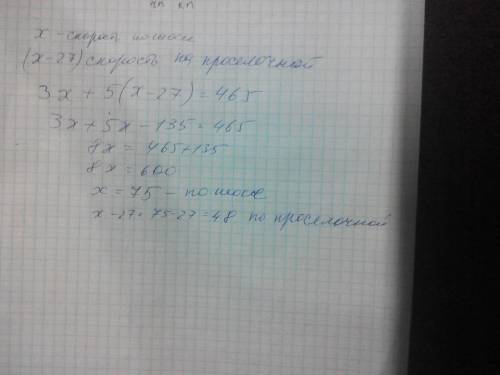 x - скорость по шоссе
(x-27) скорость на проселочной
3x + 5(x-27) = 465
3x + 5x - 135 = 465
8x = 465+135
8x = 600
x = 75 - по шоссе
x-27 = 75-27 = 48 по проселочной